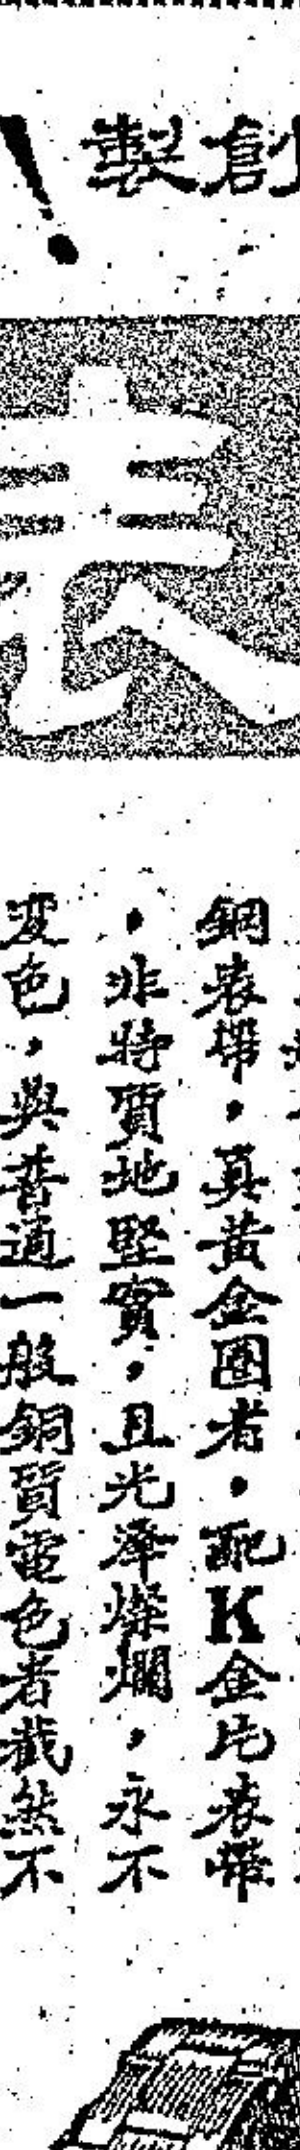 創製！
表
鋼表帶，真黃金圈者，配K金片表帶
，非特質地堅實，且光澤燦爛，永不
変色，與普通一般銅質電色者截然不